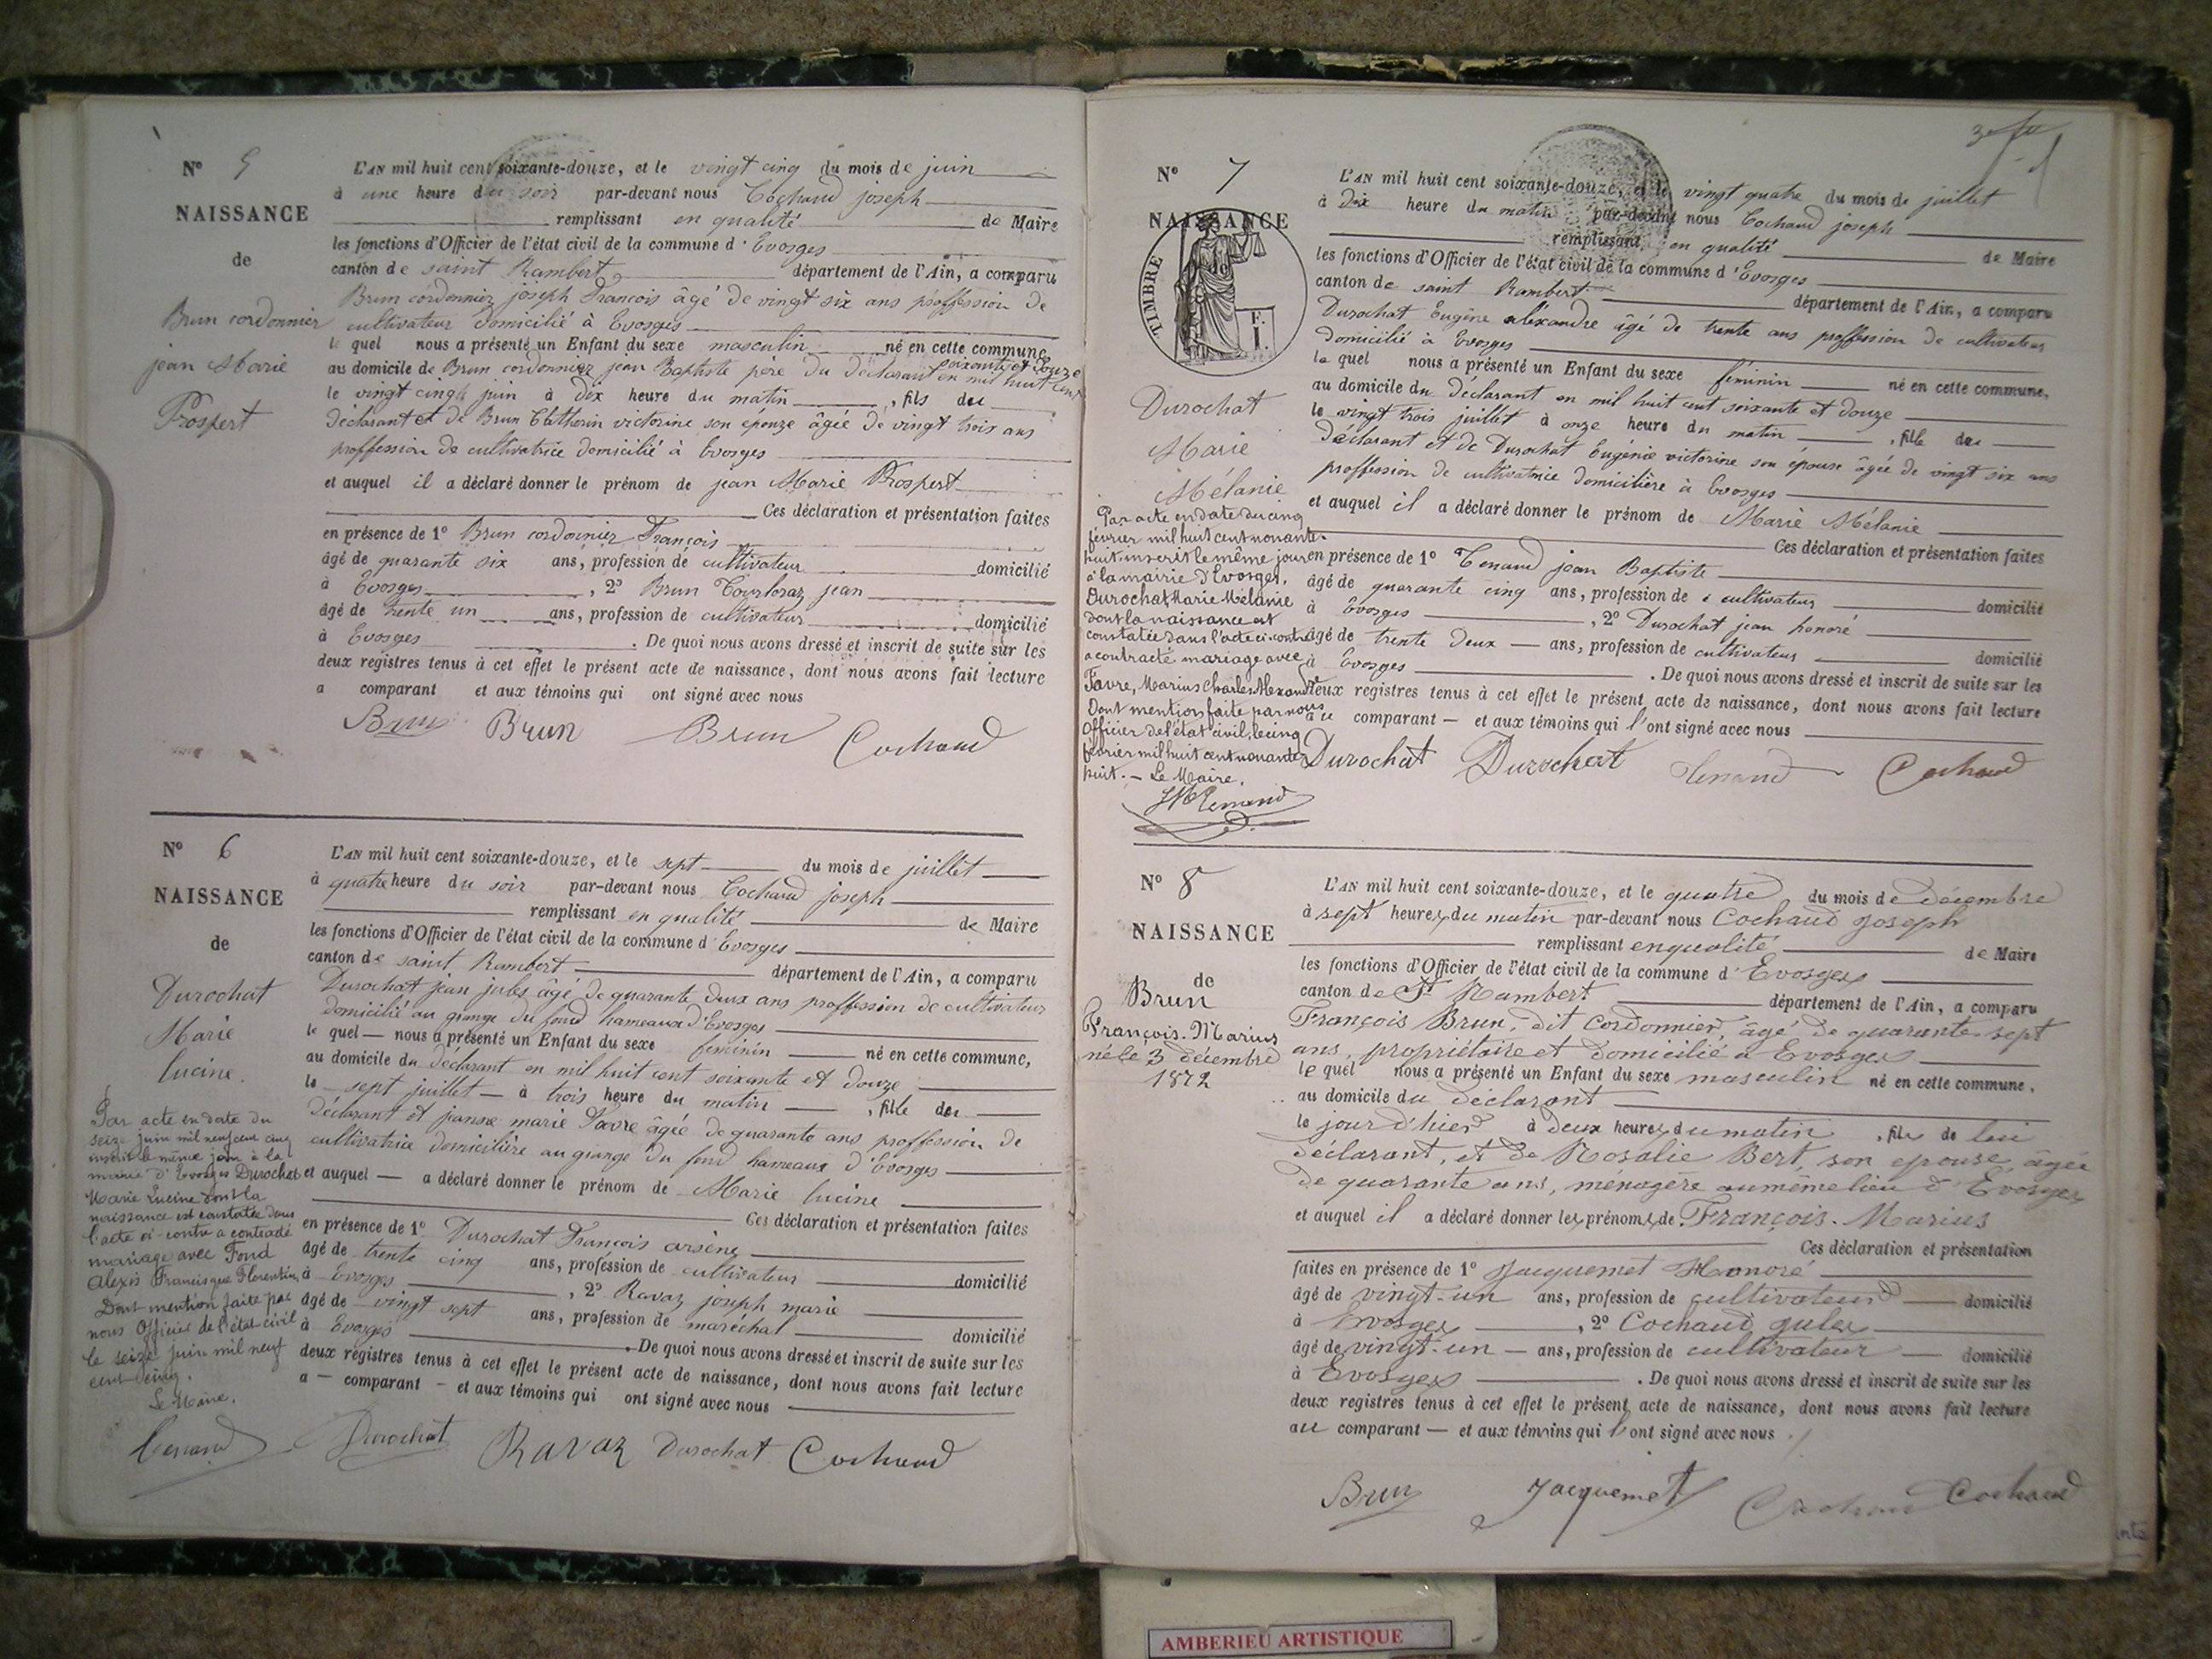 N° 5
NAISSANCE
de
Brun cordonnier
jean Marie
Prospert
L'AN mil huit cent soixante-douze, et le vingt cinq du mois de juin
à une heure du soir par-devant nous Cochaud joseph
remplissant en qualité de Maire
les fonctions d'Officier de l'état civil de la commune d'Evosges
canton de saint Rambert département de l'Ain, a comparu
Brun cordonnier joseph François âgé de vingt six ans proffession de
cultivateur domicilié à Evosges
le quel nous a présenté un Enfant du sexe masculin né en cette commune
au domicile de Brun cordonnier jean Baptiste père du déclarant en mil huit cent soixante et douze
le vingt cinq juin à dix heure du matin , fils du
déclarant et de Brun victorine son épouze âgée de vingt trois ans
proffession de cultivatrice domicilié à Evosges
et auquel il a déclaré donner le prénom de jean Marie Prospert
Ces déclaration et présentation faites
en présence de 1° Brun cordonnier François
âgé de quarante six ans, profession de cultivateur domicilié
à Evosges , 2° Brun Tourloraz jean
âgé de trente un ans, profession de cultivateur domicilié
à Evosges . De quoi nous avons dressé et inscrit de suite sur les
deux registres tenus à cet effet le présent acte de naissance, dont nous avons fait lecture
a comparant et aux témoins qui ont signé avec nous
Brun Brun Brun Cochaud
N° 6
NAISSANCE
de
Durochat
Marie
lucine.
Par acte en date du
seize juin mil neuf cent cinq
inscrit le même jour à la
mairie d'Evosges Durochat
Marie Lucine dont la
naissance est constatée dans
l'acte ci-contre a contracté
mariage avec Fond
Alexis Francisque Florentin
Dont mention faite par
nous Officier de l'état-civil
le seize juin mil neuf
cent cinq.
Le Maire.
Tenand
L'AN mil huit cent soixante-douze, et le sept du mois de juillet
à quatre heure du soir par-devant nous Cochaud joseph
remplissant en qualité de Maire
les fonctions d'Officier de l'état civil de la commune d'Evosges
canton de saint Rambert département de l'Ain, a comparu
Durochat jean jules âgé de quarante deux ans proffession de cultivateur
domicilié au grange du fond hameaux d'Evosges
le quel — nous a présenté un Enfant du sexe feminin né en cette commune,
au domicile du déclarant en mil huit cent soixante et douze
le sept juillet — à trois heure du matin — , fille du
déclarant et janne marie Favre âgée de quarante ans proffession de
cultivatrice domicilière au grange du fond hameaux d'Evosges
et auquel — a déclaré donner le prénom de Marie lucine
Ces déclaration et présentation faites
en présence de 1° Durochat François arsène
âgé de trente cinq ans, profession de cultivateur domicilié
à Evosges , 2° Ravaz joseph marie
âgé de vingt sept ans, profession de maréchal domicilié
à Evosges . De quoi nous avons dressé et inscrit de suite sur les
deux registres tenus à cet effet le présent acte de naissance, dont nous avons fait lecture
a — comparant — et aux témoins qui ont signé avec nous
Durochat Ravaz Durochat Cochaud
N° 7
NAISSANCE
de
TIMBRE
Durochat
Marie
Mélanie
Par acte en date du cinq
février mil huit cent nonante-
huit inscrit le même jour
à la mairie d'Evosges,
Durochat Marie Mélanie
dont la naissance est
constatée dans l'acte ci-contre
a contracté mariage avec
Favre, Marius Charles Alexandre
Dont mention faite par nous
Officier de l'état civil, le cinq
février mil huit cent nonante
huit. — Le Maire,
L'AN mil huit cent soixante-douze, et le vingt quatre du mois de juillet
à dix heure du matin par-devant nous Cochaud joseph
remplissant en qualité de Maire
les fonctions d'Officier de l'état civil de la commune d'Evosges
canton de saint Rambert département de l'Ain, a comparu
Durochat Eugène aléxandre âgé de trente ans proffession de cultivateur
domicilié à Evosges
le quel nous a présenté un Enfant du sexe féminin né en cette commune,
au domicile du déclarant en mil huit cent soixante et douze
le vingt trois juillet à onze heure du matin , fille du
déclarant et de Durochat Eugénie victorine son épouse âgée de vingt six ans
proffession de cultivatrice domicilière à Evosges
et auquel il a déclaré donner le prénom de Marie Mélanie
Ces déclaration et présentation faites
en présence de 1° Tenand jean Baptiste
âgé de quarante cinq ans, profession de cultivateur domicilié
à Evosges , 2° Durochat jean honoré
âgé de trente deux — ans, profession de cultivateur domicilié
à Evosges . De quoi nous avons dressé et inscrit de suite sur les
deux registres tenus à cet effet le présent acte de naissance, dont nous avons fait lecture
au comparant — et aux témoins qui l'ont signé avec nous
Durochat Durochat Tenand Cochaud
N° 8
NAISSANCE
de
Brun
François-Marius
né le 3 décembre
1872
L'AN mil huit cent soixante-douze, et le quatre du mois de décembre
à sept heures du matin par-devant nous Cochaud Joseph
remplissant en qualité de Maire
les fonctions d'Officier de l'état civil de la commune d'Evosges
canton de St Rambert département de l'Ain, a comparu
François Brun, dit cordonnier, âgé de quarante-sept
ans, propriétaire et domicilié à Evosges
le quel nous a présenté un Enfant du sexe masculin né en cette commune,
au domicile du déclarant
le jour d'hier à deux heures du matin , fils de lui
déclarant, et de Rosalie Bert, son epouse, âgée
de quarante ans, ménagère au même lieu d'Evosges
et auquel il a déclaré donner les prénoms de François-Marius
Ces déclaration et présentation
faites en présence de 1° Jacquemet Honoré
âgé de vingt-un ans, profession de cultivateur domicilié
à Evosges , 2° Cochaud Jules
âgé de vingt-un — ans, profession de cultivateur — domicilié
à Evosges . De quoi nous avons dressé et inscrit de suite sur les
deux registres tenus à cet effet le présent acte de naissance, dont nous avons fait lecture
au comparant — et aux témoins qui l'ont signé avec nous
Brun Jacquemet Cochaud Cochaud
AMBERIEU ARTISTIQUE